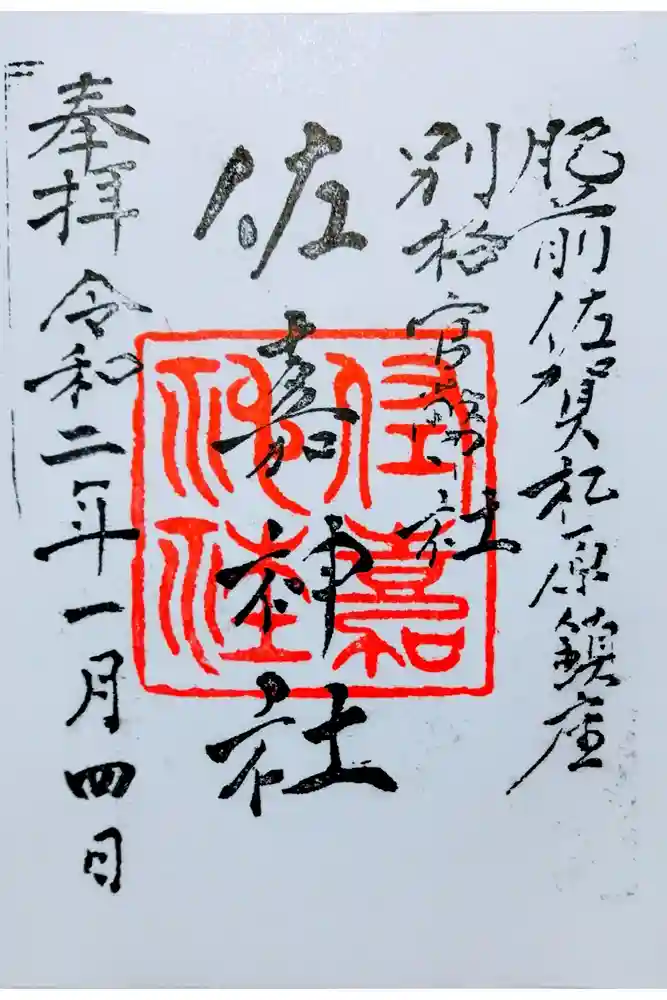 肥前佐賀松原鎮座
別格官幣社
佐嘉神社
奉拝 令和二年一月四日
佐嘉
神社